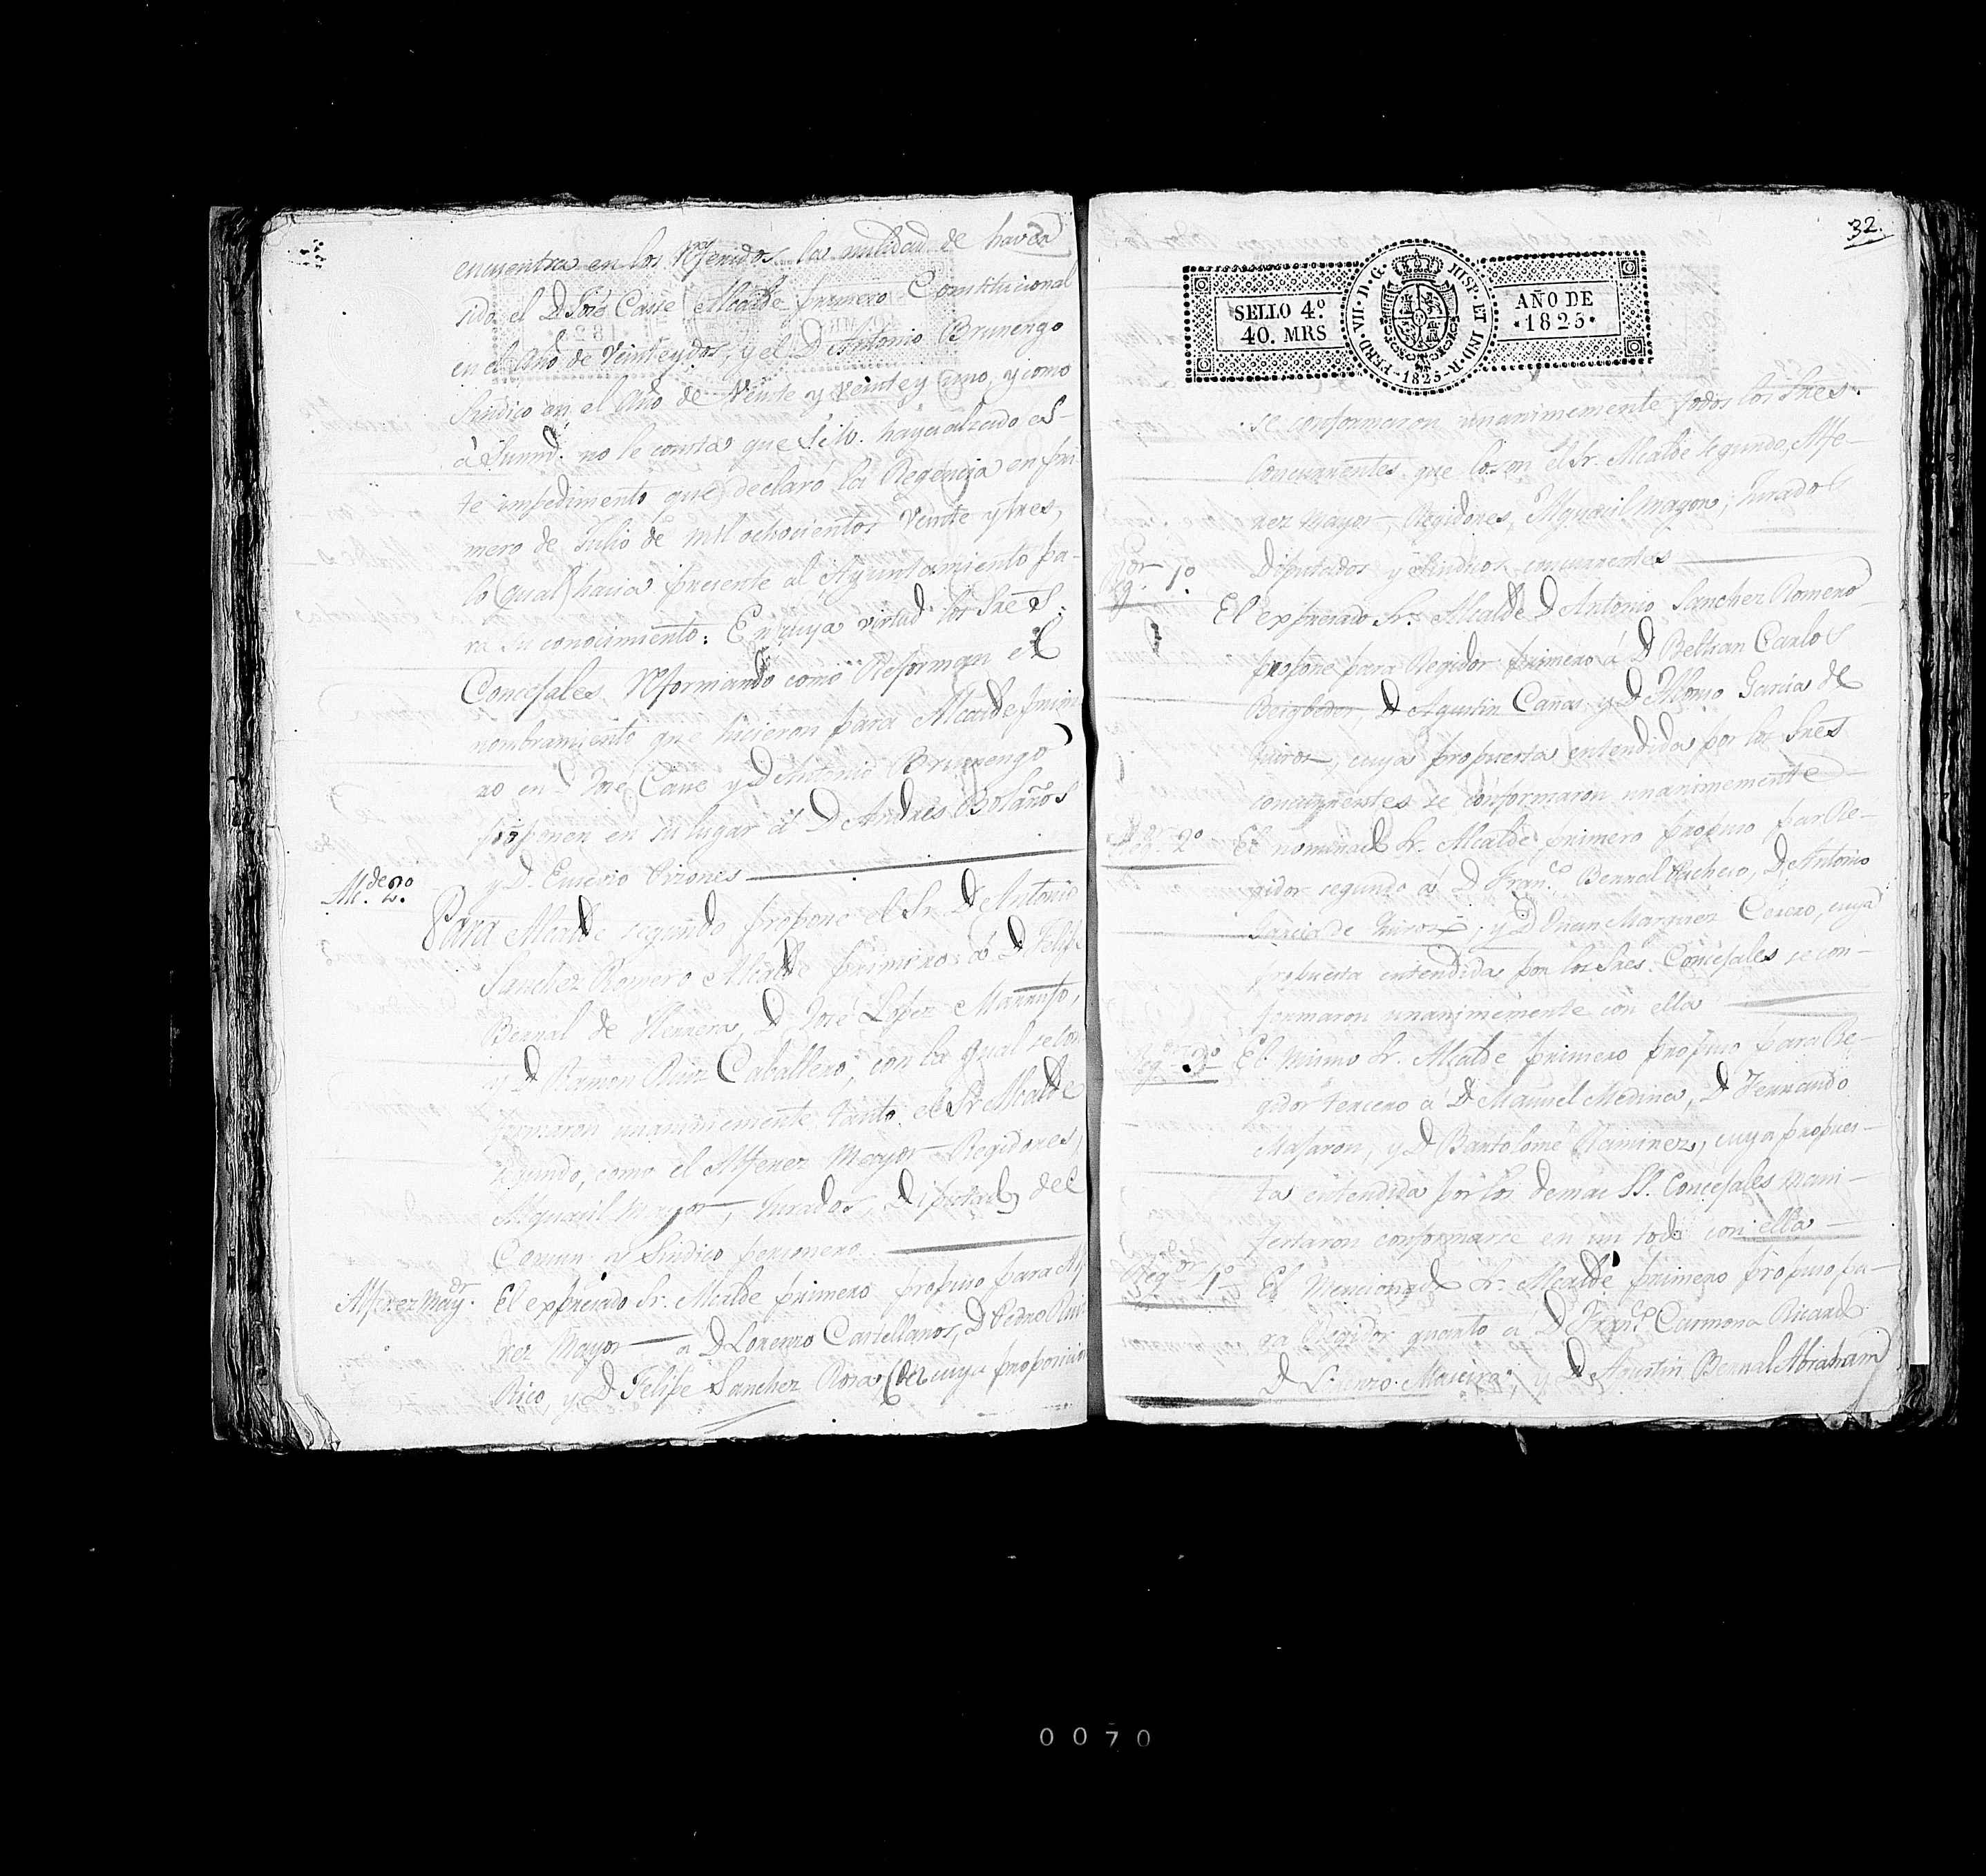 encuentra en los referidos la nulidad de haver
sido el D. José Casse Alcalde primero Constitucional
en el Año de Veinte y dos, y el D. Antonio Brunengo
Sindico en el Año de Veinte y Veinte y uno, y como
á Sumd. no le consta que S. M. haya alzado es-
te impedimento que declaró la Regencia en pri-
mero de Julio de mil ochocientos Veinte y tres,
lo qual hacia presente al Ayuntamiento pa-
ra su conocimiento: En cuya virtud los Sres.
Concejales reformando como Reforman el
nombramiento que hicieron para Alcalde prime-
ro en D. José Casse y D. Antonio Brunengo
proponen en su lugar á D. Andrés Bolaños
y D. Eusevio
Alc.de 2.o
Para Alcalde segundo propone el Sr. D. Antonio
Sanchez Romero Alcalde primero á D. Felipe
Bernal de Herrera, D. José Lopez Marrufo,
y D. Ramon Ruiz Caballero, con la qual se con
formaron unanimemente tanto el Sr. Alcalde
segundo, como el Alferez Mayor Regidores,
Alguacil Mayor, Jurados, Diputados del
Comun y Sindico personero
Alferez may.or
El expresado Sr. Alcalde primero propuso para Alf
rez Mayor a D. Lorenzo Castellanos, D. Pedro Ruiz
Rico, y D. Felipe Sanchez Rosa, cuya proposicion
32.
SELLO 4.º
40. MRS
FERD. VII. D. G. HISP. ET IND. R.
1825
AÑO DE
1825
se conformaron unanimemente todos los Sres.
concurrentes que lo son el Sr. Alcalde segundo, Alfe-
rez Mayor, Regidores, Alguacil mayor, Jurados
Diputados y Sindicos concurrentes
Reg.or 1.o
El expresado Sr. Alcalde D. Antonio Sanchez Romero
propone para Regidor primero á D. Beltran Carlos
Beigbeder, D. Agustin Cañas y D. Alfonso Garcia de
Quiros, cuya propuesta entendida por los Sres
concurrentes se conformaron unanimemente
Reg.or 2.o
El nominado Sr. Alcalde primero propuso par Re-
gidor segundo á D. Fran.co Bernal Pacheco, D. Antonio
Garcia de Quiros, y D. Juan Marquez Cerezo, cuya
propuesta entendida por los Sres. Concejales se con-
formaron unanimemente con ella
Reg.or 3.o
El mismo Sr. Alcalde primero propuso para Re-
gidor tercero á D. Manuel Medina, D. Fernando
Masaron, y D. Bartolomé Ramirez, cuya propues-
ta entendida por los demas SS. Concejales mani-
festaron conformarce en un todo con ella
Reg.or 4.o
El Mencionado Sr. Alcalde primero propuso pa-
ra Regidor quarto á D. Fran.co Carmona Ricardo
D. Lorenzo Maceira, y D. Agustin Bernal Abraham
0070